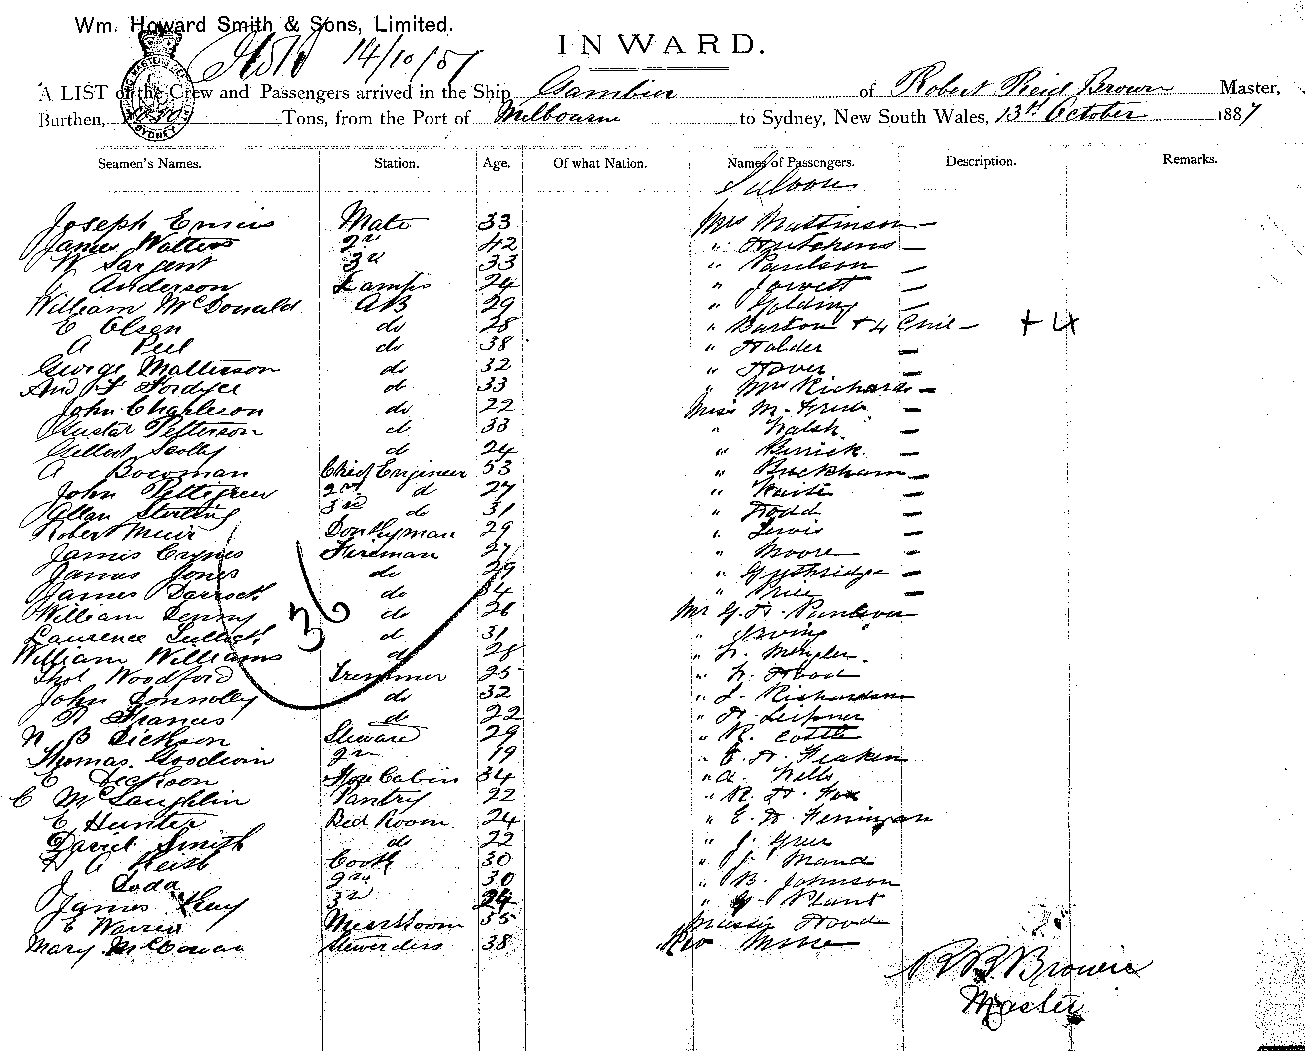 Wm. Howard Smith & Sons, Limited.
INWARD.
14/10/87
A LIST of the Crew and Passengers arrived in the Ship Gambier of Robert Reid Brown Master,
Burthen, Tons, from the Port of Melbourne to Sydney, New South Wales, 13th October 1887
Seamen's Names. Station. Age. Of what Nation. Names of Passengers. Description. Remarks.
Saloon
Joseph Ennis Mate 33 Mrs Mattinson -
James Walters 2nd 42 " Hutchens -
W Sargent 3rd 33 " Paulson -
J Anderson Lamps 24 " Jowett -
William McDonald AB 29 " Golding -
C Olsen do 28 " Burton + 4 Chil - + 4
A Peel do 38 " Halder -
George Matterson do 32 " Hover -
And F Fordyce do 33 " Mrs Richards -
John Charleson do 22 Miss M. -
Gustaf Petterson do 33 " Walsh -
Scolly do 24 " -
A Bowman Chief Engineer 53 " Buckham -
John Pettigrew 2nd d 27 " -
Allan Sterling 3rd do 31 " Dodd -
Robert Muir Donkyman 29 " Lewis -
James Fireman 27 " Moore -
James Jones do 29 " -
James Darroch do 34 " Price -
William Denny do 26 Mr G. H. Paulson
Laurence d 31 " Irving
William Williams d 28 " H. Mengler
Thos Woodford Tremmer 25 " H. Hood
John Connolly do 32 " J. Richardson
R Francis do 22 " H
N B Dickson Steward 29 " R. Costle
Thomas Goodwin 2nd 19 " E. H.
C Dickson Fore Cabin 34 " A. Wells
C McLaughlin Pantry 22 " R. H. Fox
E Hunter Bed Room 24 " E. H. Fennigan
David Smith do 22 " J. Greer
H A Keith Cook 30 " J. Maund
J Dodd 2nd 30 " B. Johnson
James Kay 3rd 24 " G. Plant
E Warren Messroom 35 Hood
Mary McCowan Stewerdess 38 Rev Morse
36
R R Brown
Master